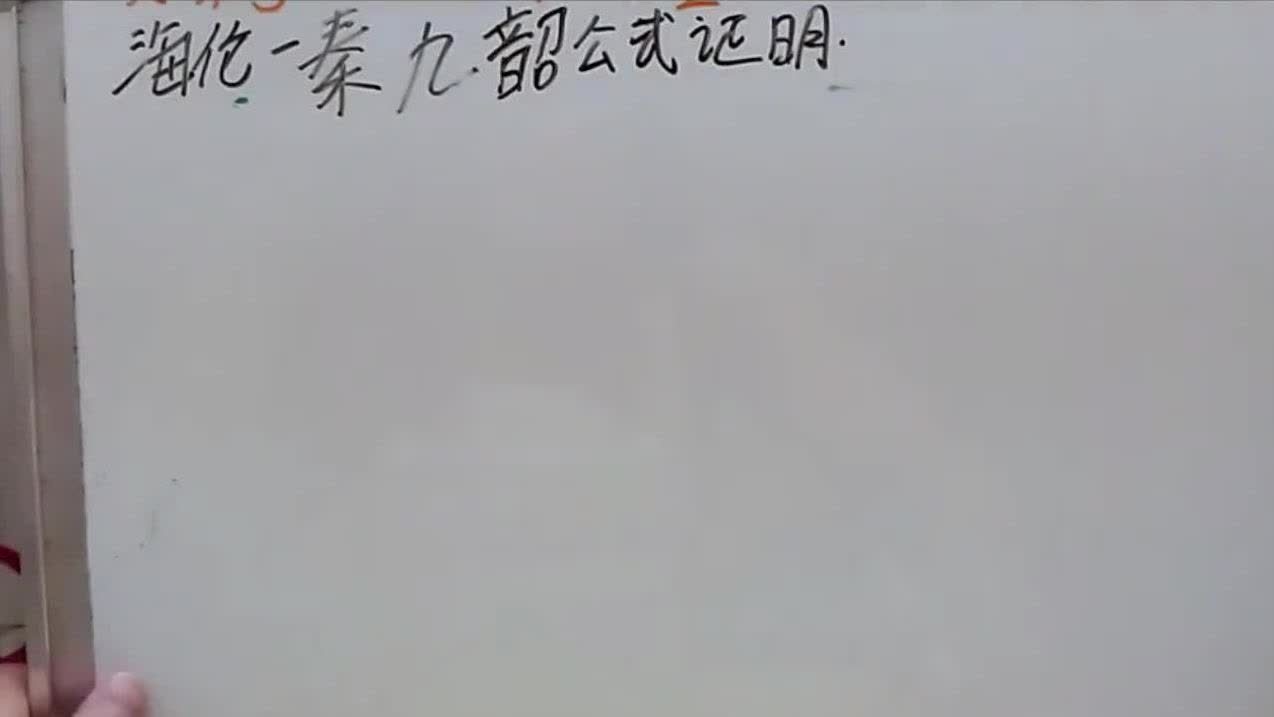 海伦-秦九韶公式证明.